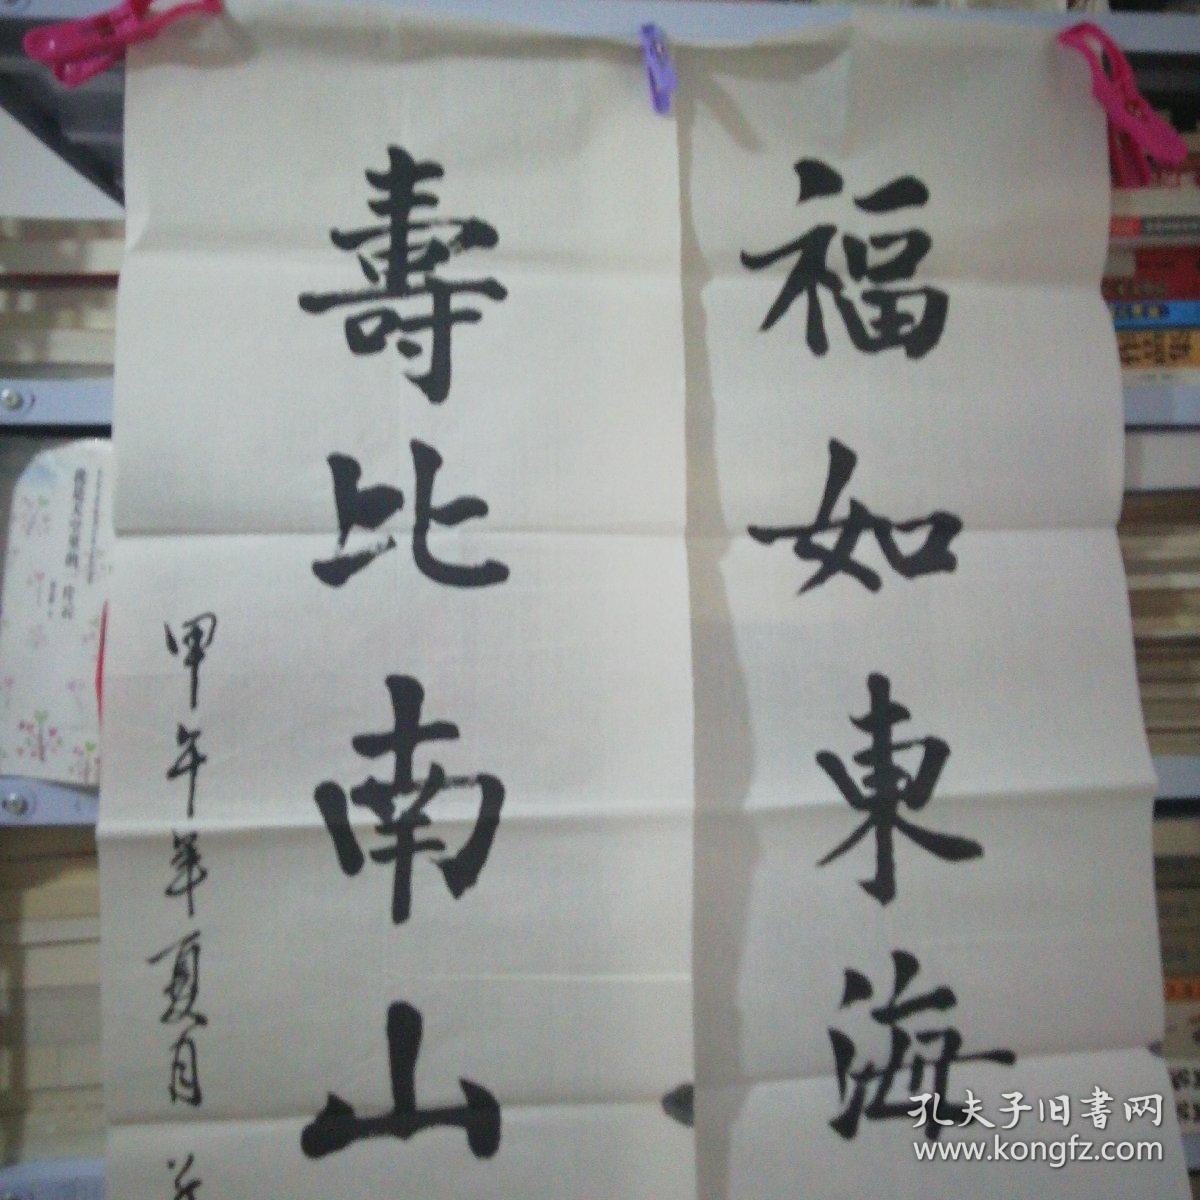 福如東海
壽比南山
甲午年夏月
孔夫子旧書网
www.kongfz.com